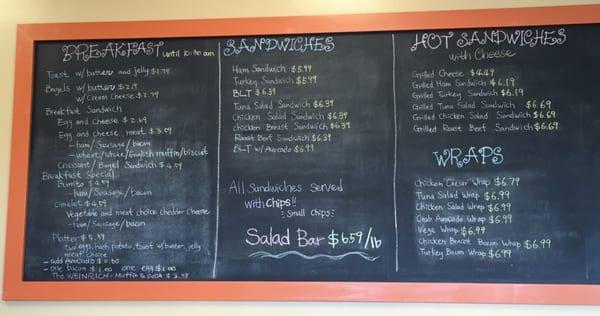 BREAKFAST until 10:30 am
Toast w/butter and jelly $1.79
Bagels w/butter $2.19
w/Cream Cheese $2.79
Breakfast Sandwich
Egg and cheese $2.69
Egg and cheese, meat $3.59
-ham/sausage/bacon
-wheat/white/English muffin/biscuit
Croissant/Bagel Sandwich $4.59
Breakfast Special
Burrito $4.59
-ham/sausage/bacon
Omelet $4.59
Vegetable and meat choice chedder cheese
-ham/sausage/bacon
Platter $5.39
two eggs, hash potato, toast w/butter, jelly
meat choice
-add Avocado $0.50
-one bacon $1.00 one egg $1.00
The WEINRICH-Muffin & SODA $3.38
SANDWICHES
Ham Sandwich $5.99
Turkey Sandwich $5.99
BLT $6.39
Tuna Salad Sandwich $6.39
Chicken Salad Sandwich $6.39
chicken Breast Sandwich $6.39
Roast Beef Sandwich $6.39
BLT w/Avocado $6.99
All Sandwiches Served
with Chips!!
(Small Chips)
Salad Bar $6.59/lb
HOT SANDWICHES
with Cheese
Grilled Cheese $4.49
Grilled Ham Sandwich $6.19
Grilled Turkey Sandwich $6.19
Grilled Tuna Salad Sandwich $6.69
Grilled Chicken Salad Sandwich $6.69
Grilled Roast Beef Sandwich $6.69
WRAPS
Chicken Caesar Wrap $6.79
Tuna Salad Wrap $6.99
Chicken Salad Wrap $6.99
Crab Avocado Wrap $6.99
Vege Wrap $6.99
Chicken Breast Bacon Wrap $6.99
Turkey Bacon Wrap $6.99